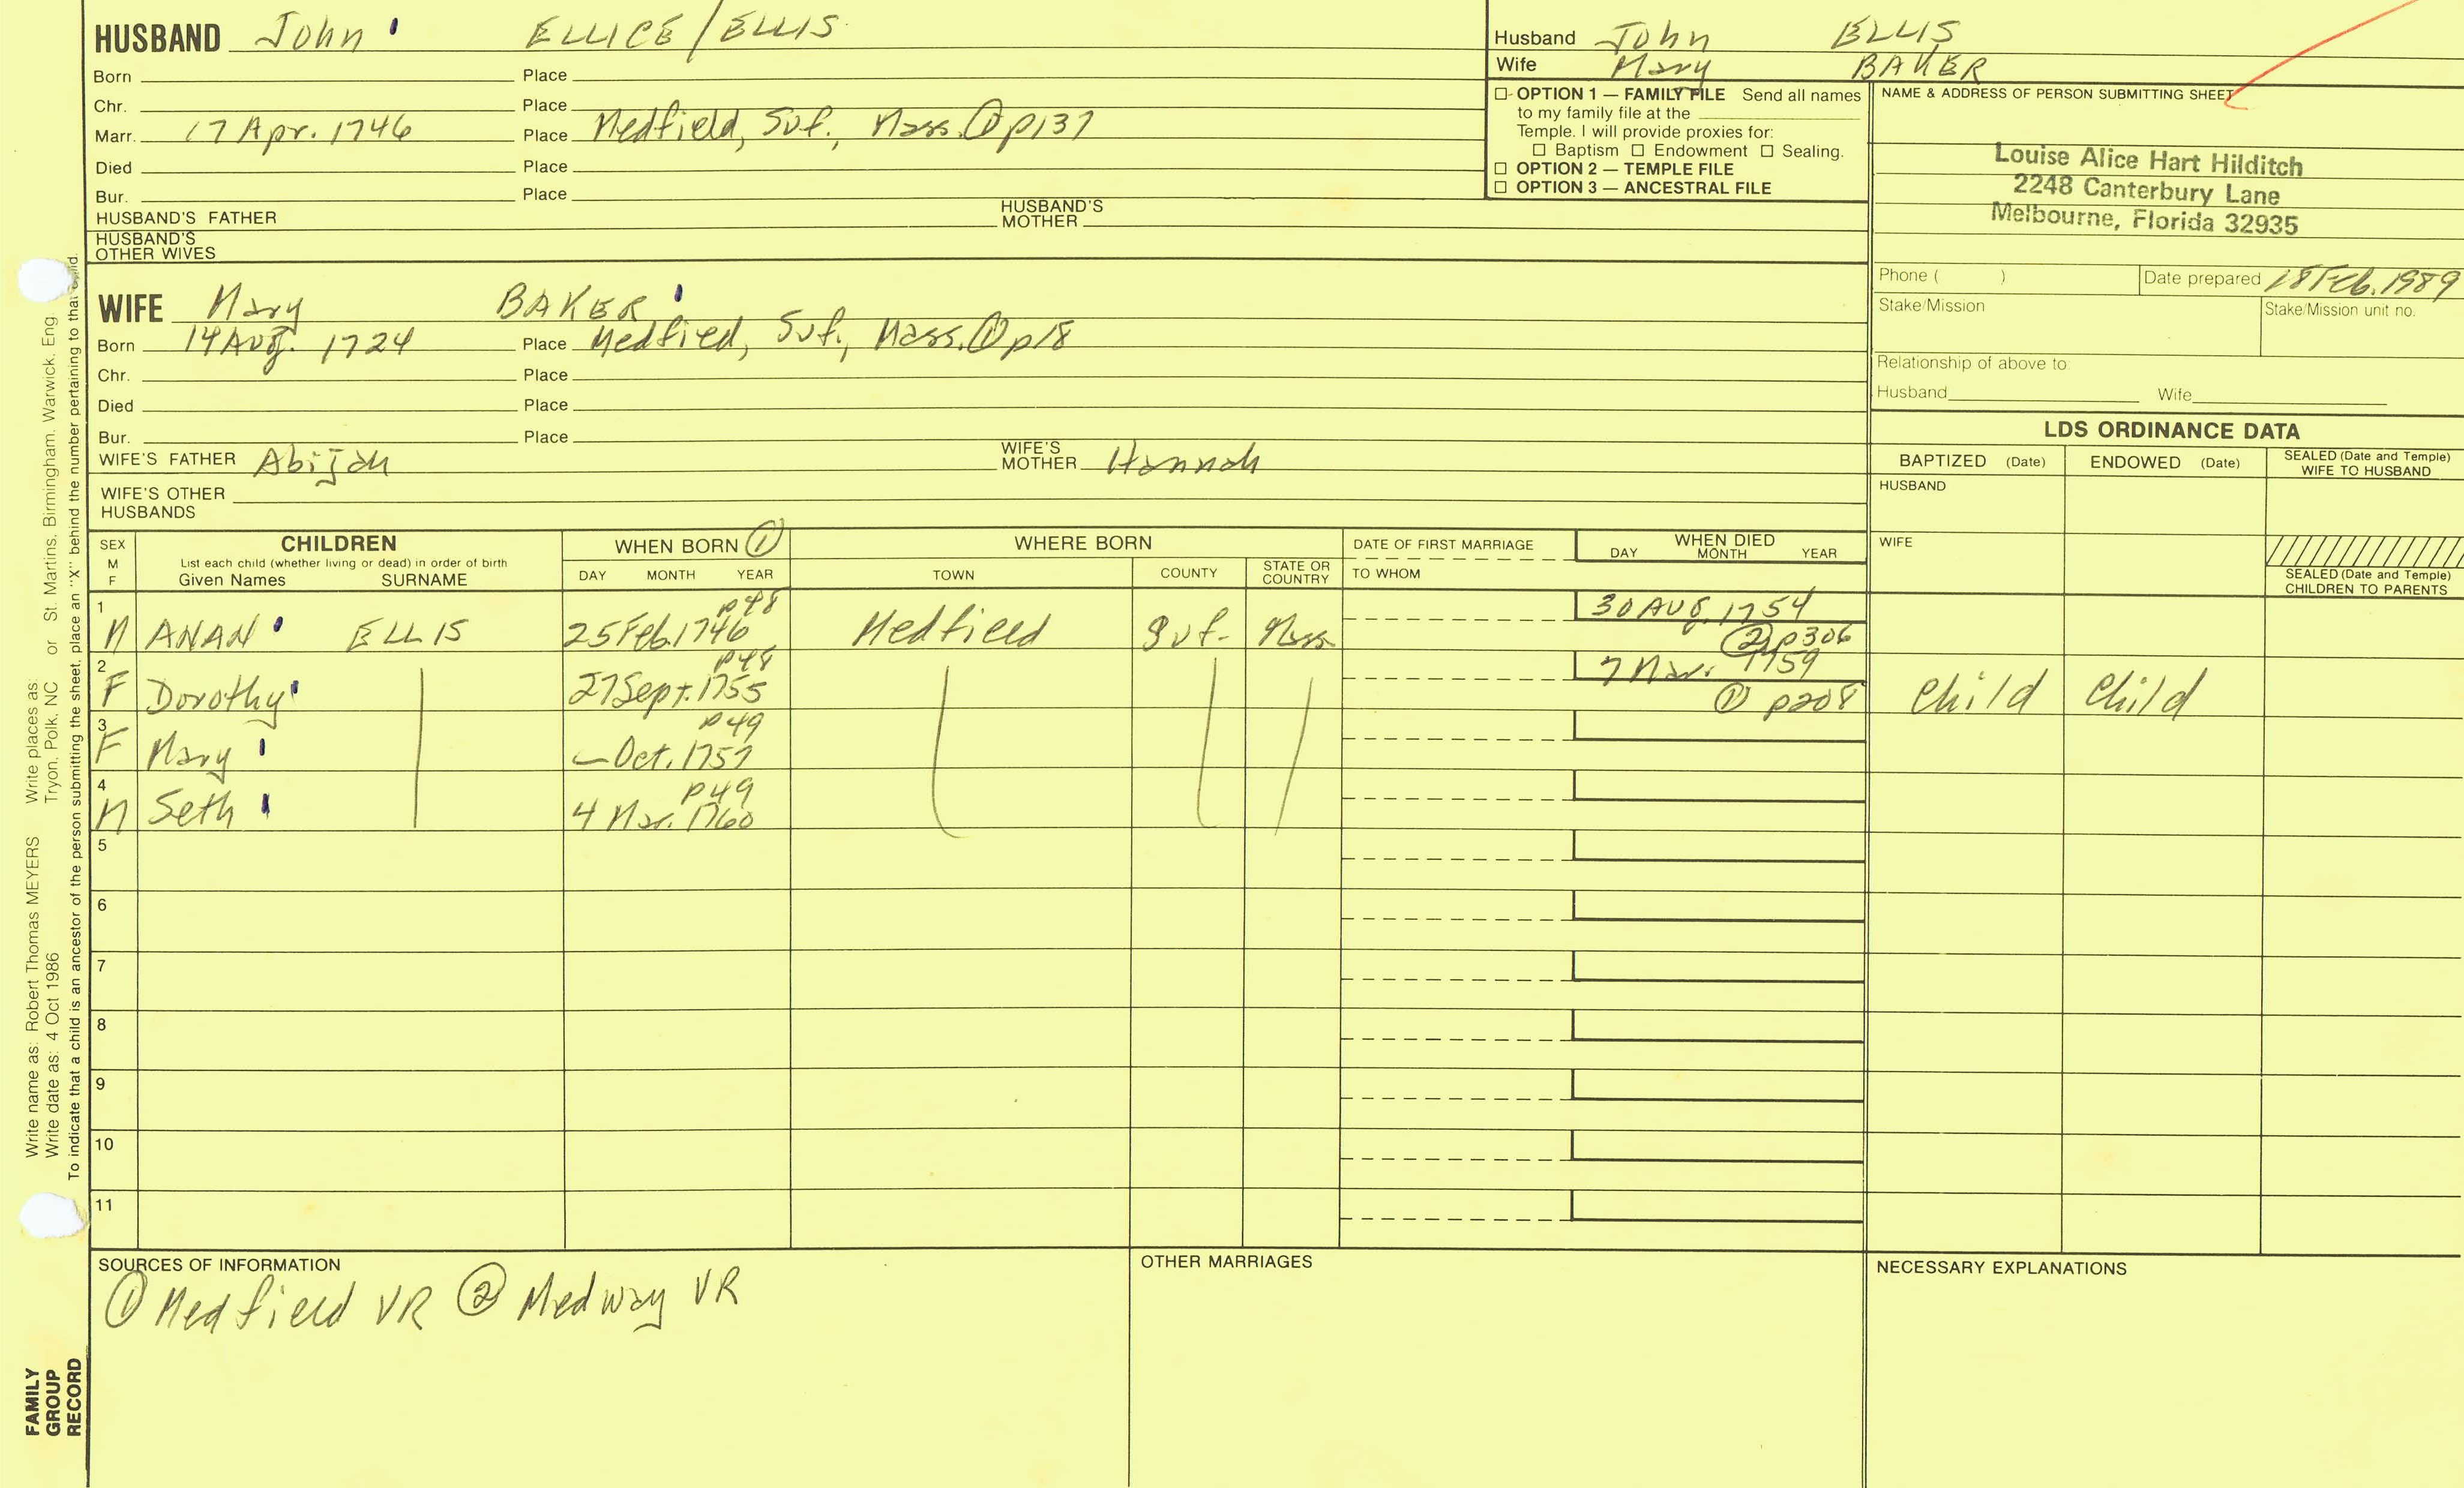 HUSBAND John ELLICE/ELLIS
Born Place
Chr. Place
Marr. 17 Apr. 1746 Place Medfield, Suf., Mass. ① p137
Died Place
Bur. Place
HUSBAND'S FATHER HUSBAND'S MOTHER
HUSBAND'S OTHER WIVES
Husband John ELLIS
Wife Mary BAKER
OPTION 1 — FAMILY FILE Send all names
to my family file at the
Temple. I will provide proxies for:
Baptism Endowment Sealing.
OPTION 2 — TEMPLE FILE
OPTION 3 — ANCESTRAL FILE
NAME & ADDRESS OF PERSON SUBMITTING SHEET
Louise Alice Hart Hilditch
2248 Canterbury Lane
Melbourne, Florida 32935
Phone ( ) Date prepared 18 Feb. 1989
Stake/Mission Stake/Mission unit no.
Relationship of above to:
Husband Wife
WIFE Mary BAKER
Born 14 Aug. 1724 Place Medfied, Suf., Mass. ① p18
Chr. Place
Died Place
Bur. Place
WIFE'S FATHER Abijah WIFE'S MOTHER Hannah
WIFE'S OTHER HUSBANDS
LDS ORDINANCE DATA
BAPTIZED (Date) ENDOWED (Date) SEALED (Date and Temple) WIFE TO HUSBAND
HUSBAND
WIFE
SEALED (Date and Temple) CHILDREN TO PARENTS
SEX M F
CHILDREN
List each child (whether living or dead) in order of birth
Given Names SURNAME
WHEN BORN ①
DAY MONTH YEAR
WHERE BORN
TOWN COUNTY STATE OR COUNTRY
DATE OF FIRST MARRIAGE
TO WHOM
WHEN DIED
DAY MONTH YEAR
1 M ANAN ELLIS 25 Feb. 1746 p48 Medfield Suf. Mass 30 Aug. 1754 ② p306
2 F Dorothy 27 Sept. 1755 p48 7 Mar. 1759 ① p208 Child Child
3 F Mary — Oct. 1757 p49
4 M Seth 4 Mar. 1760 p49
5
6
7
8
9
10
11
SOURCES OF INFORMATION
① Medfield VR ② Medway VR
OTHER MARRIAGES
NECESSARY EXPLANATIONS
Write name as: Robert Thomas MEYERS Write places as: St. Martins, Birmingham, Warwick, Eng
Write date as: 4 Oct 1986 Tryon, Polk, NC or
To indicate that a child is an ancestor of the person submitting the sheet, place an "X" behind the number pertaining to that child.
FAMILY
GROUP
RECORD